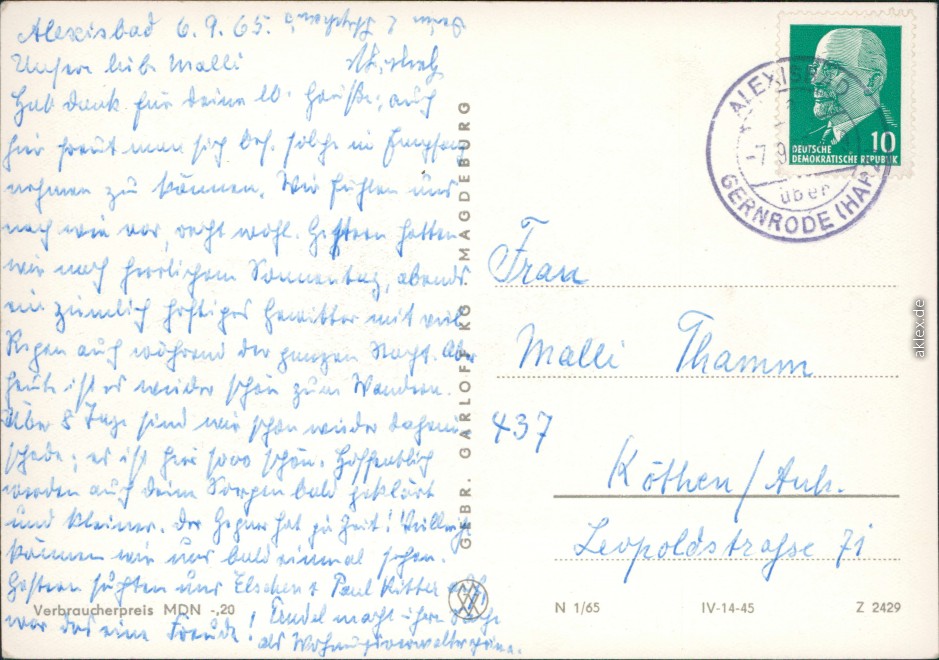 Alexisbad 6.9.65.
Unsere liebe Malli
Hab Dank für deine lb. Grüße; auch
hier freut man sich bes. solche in Empfang
nehmen zu können. Wir fühlen uns
nach wie vor recht wohl. Gestern hatten
wir noch herrlichem Sonnentag, abends
ein ziemlich heftiges Gewitter mit viel
Regen auch während der ganzen Nacht. Aber
heute ist es wieder schön zum Wandern.
Über 8 Tage sind wir schon wieder daheim
schade; es ist hier sooo schön. Hoffentlich
werden auch deine Sorgen bald geklärt
und kleiner. Der hat zur Zeit! Vielleicht
können wir uns bald einmal sehen.
Gestern suchten uns Elschen & Paul Ritter auf!
war das eine Freude! macht ihre Sache
als
Verbraucherpreis MDN -,20
GEBR. GARLOFF KG. MAGDEBURG
ALEXISBAD
-7.9
über
GERNRODE (HARZ)
10
DEUTSCHE
DEMOKRATISCHE REPUBLIK
Frau
Malli Thamm
437
Köthen/Anh.
Leopoldstrasse 71
N 1/65 IV-14-45 Z 2429
aklex.de